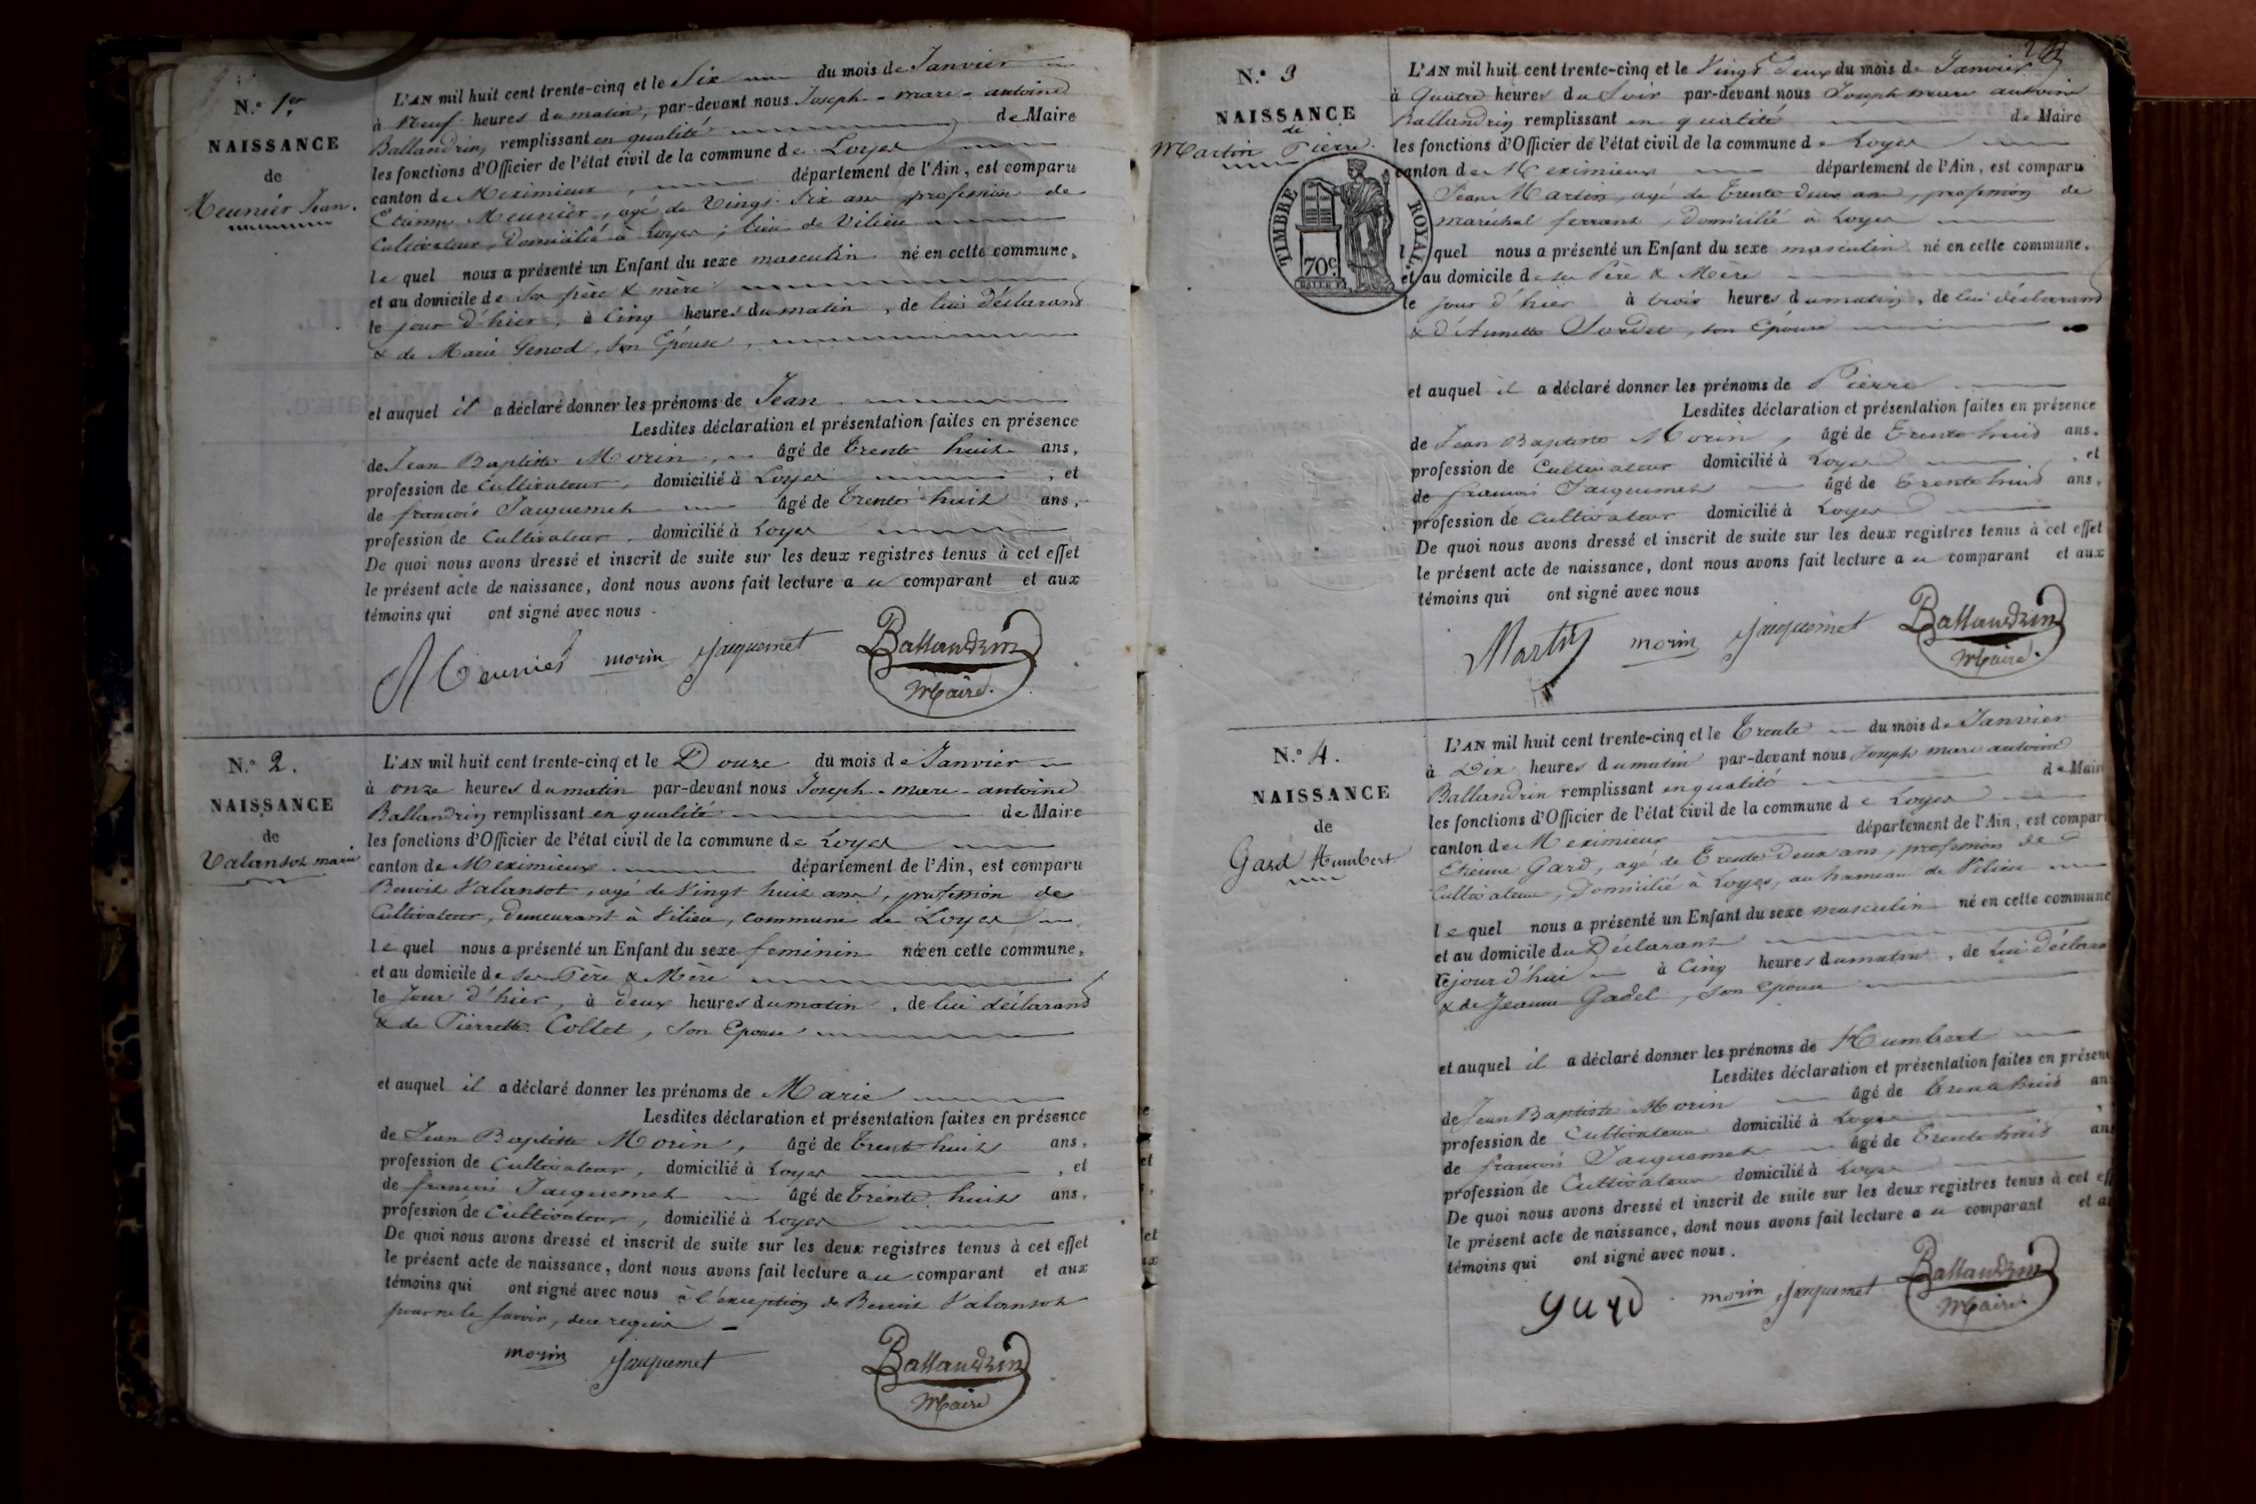 N.o 1.er
NAISSANCE
de
Meunier Jean.
L'AN mil huit cent trente-cinq et le Six du mois de Janvier
à Neuf heures du matin, par-devant nous Joseph-marc-antoine
Ballandrin remplissant en qualité de Maire
les fonctions d'Officier de l'état civil de la commune de Loyes
canton de Meximieux, département de l'Ain, est comparu
Etienne Meunier, agé de Vingt Six ans, profession de
Cultivateur, Domicilié à Loyes, lieu de Vilieu
le quel nous a présenté un Enfant du sexe masculin né en cette commune,
et au domicile de Ses père & mère
le jour d'hier, à Cinq heures du matin, de lui déclarant
& de Marie Genod, Son Épouse,
et auquel il a déclaré donner les prénoms de Jean
Lesdites déclaration et présentation faites en présence
de Jean Baptiste Morin, âgé de trente huit ans,
profession de Cultivateur, domicilié à Loyes, et
de françois Jacquemet âgé de trente huit ans,
profession de Cultivateur, domicilié à Loyes
De quoi nous avons dressé et inscrit de suite sur les deux registres tenus à cet effet
le présent acte de naissance, dont nous avons fait lecture a ce comparant et aux
témoins qui ont signé avec nous.
Meunier morin Jacquemet Ballandrin
Maire.
N.o 2.
NAISSANCE
de
Valansot marie
L'AN mil huit cent trente-cinq et le Douze du mois de Janvier
à onze heures du matin par-devant nous Joseph-marc-antoine
Ballandrin remplissant en qualité de Maire
les fonctions d'Officier de l'état civil de la commune de Loyes
canton de Meximieux département de l'Ain, est comparu
Benoit Valansot, agé de Vingt huit ans, profession de
Cultivateur, demeurant à Vilieu, commune de Loyes
le quel nous a présenté un Enfant du sexe feminin née en cette commune,
et au domicile de ses Père & Mère
le Jour d'hier, à deux heures du matin, de lui déclarant
& de Pierrette Collet, Son Epouse
et auquel il a déclaré donner les prénoms de Marie
Lesdites déclaration et présentation faites en présence
de Jean Baptiste Morin, âgé de trente huit ans,
profession de Cultivateur, domicilié à Loyes, et
de françois Jacquemet âgé de trente huit ans,
profession de Cultivateur, domicilié à Loyes
De quoi nous avons dressé et inscrit de suite sur les deux registres tenus à cet effet
le présent acte de naissance, dont nous avons fait lecture a ce comparant et aux
témoins qui ont signé avec nous à l'exception de Benoit Valansot
pour ne le Savoir, de ce requis
morin Jacquemet Ballandrin
Maire
N.o 3
NAISSANCE
de
Martin Pierre.
TIMBRE ROYAL
70c
L'AN mil huit cent trente-cinq et le Vingt Deux du mois de Janvier
à Quatre heures du Soir par-devant nous Joseph marc antoine
Ballandrin remplissant en qualité de Maire
les fonctions d'Officier de l'état civil de la commune de Loyes
canton de Meximieux département de l'Ain, est comparu
Jean Martin, agé de trente deux ans, profession de
maréchal ferrant, domicilié à Loyes
l quel nous a présenté un Enfant du sexe masculin né en cette commune,
et au domicile de ses Père & Mère
le jour d'hier à trois heures du matin, de lui déclarant
& d'Annette Sordet, son Epouse
et auquel il a déclaré donner les prénoms de Pierre
Lesdites déclaration et présentation faites en présence
de Jean Baptiste Morin, âgé de trente huit ans,
profession de Cultivateur domicilié à Loyes, et
de françois Jacquemet âgé de trente huit ans,
profession de Cultivateur domicilié à Loyes
De quoi nous avons dressé et inscrit de suite sur les deux registres tenus à cet effet
le présent acte de naissance, dont nous avons fait lecture a ce comparant et aux
témoins qui ont signé avec nous
Martin morin Jacquemet Ballandrin
Maire.
N.o 4.
NAISSANCE
de
Gard Humbert
L'AN mil huit cent trente-cinq et le Trente du mois de Janvier
à Dix heures du matin par-devant nous Joseph marc antoine
Ballandrin remplissant en qualité de Maire
les fonctions d'Officier de l'état civil de la commune de Loyes
canton de Meximieux département de l'Ain, est compar
Etienne Gard, agé de Trente deux ans, profession de
Cultivateur, Domicilié à Loyes, au hameau de Vilieu
le quel nous a présenté un Enfant du sexe masculin né en cette commune
et au domicile du Déclarant
le jour d'hui à Cinq heures du matin, de lui déclara
& de Jeanne Gadel, son epouse
et auquel il a déclaré donner les prénoms de Humbert
Lesdites déclaration et présentation faites en présen
de Jean Baptiste Morin âgé de trente huit an
profession de Cultivateur domicilié à Loyes
de françois Jacquemet âgé de trente huit an
profession de Cultivateur domicilié à Loyes
De quoi nous avons dressé et inscrit de suite sur les deux registres tenus à cet ef
le présent acte de naissance, dont nous avons fait lecture a ce comparant et a
témoins qui ont signé avec nous.
gard morin Jacquemet Ballandrin
Maire.